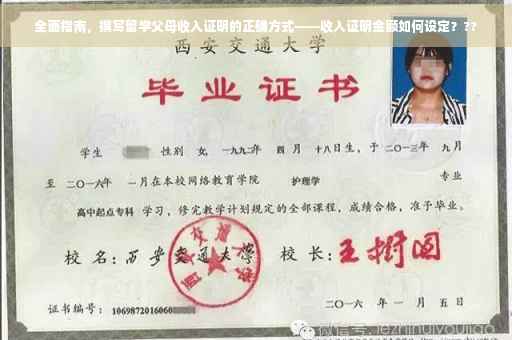 全面指南，撰写留学父母收入证明的正确方式——收入证明金额如何设定？??
西安交通大学
毕业证书
学生 性别 女，一九九二年 四月 十八日生，于二〇一三年 九月
至 二〇一六年 一月在本校网络教育学院 护理学 专业
高中起点专科 学习，修完教学计划规定的全部课程，成绩合格，准予毕业。
校 名：西安交通大学 校 长：王树国
西安交通大学
证书编号：1069872016060
二〇一六 年 一 月 五 日
微信号: jiezhihuiyoujiao